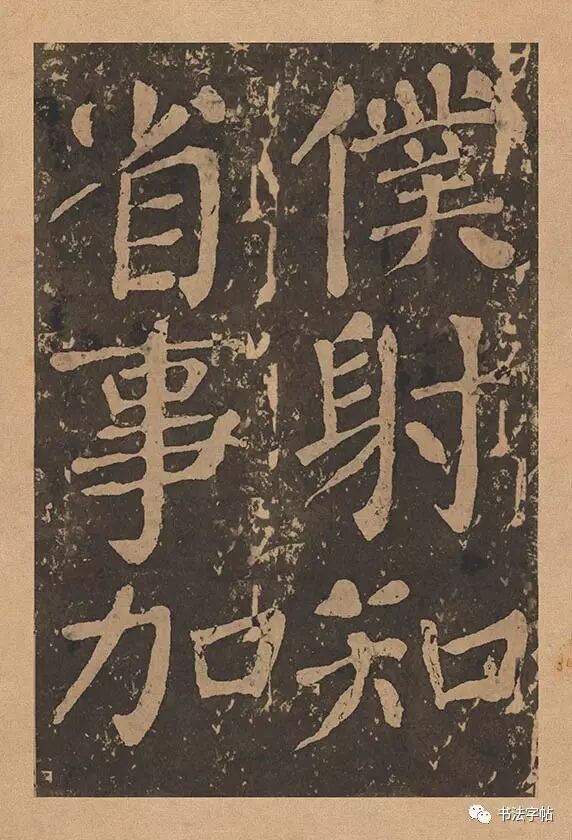 僕射知
省事加
书法字帖